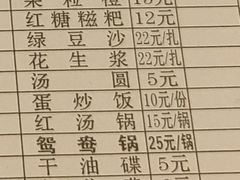 红糖糍粑 12元
绿豆沙 22元/扎
花生浆 22元/扎
汤圆 5元
蛋炒饭 10元/份
红汤锅 15元/锅
鸳鸯锅 25元/锅
干油碟 5元